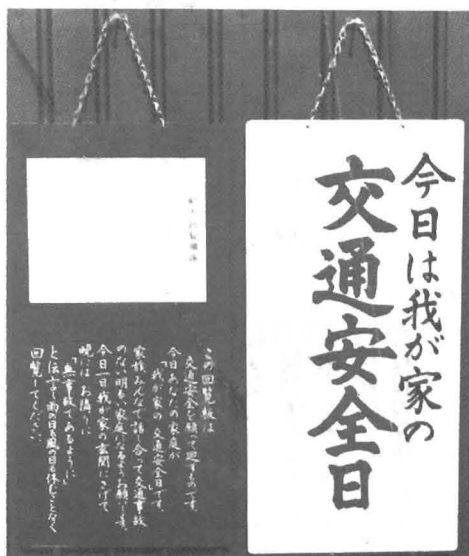 今日は我が家の
交通安全日
この回覧板は
交通安全を願って廻すものです。
今日あなたの家庭が
「我が家の交通安全日」です。
家族みんなで話し合って交通事故
のない明るい家庭になるようお願いします。
今日一日我が家の玄関にさげて
晩にはお隣りに
「無事故であるように」
と伝言し雨の日も風の日も休むことなく
回覧してください。